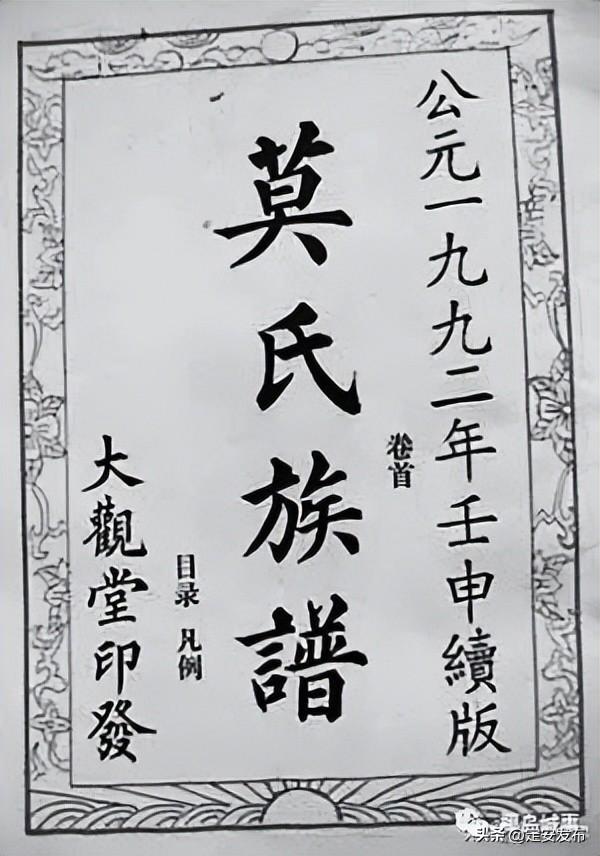 公元一九九二年壬申續版
卷首
莫氏族譜
目录 凡例
大觀堂印發
头条@定安发布